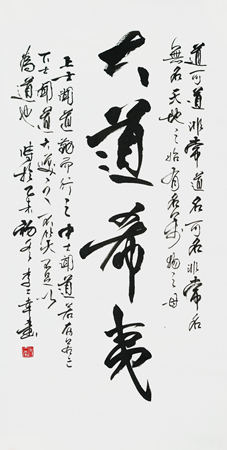 道可道非常道名可名非常名
無名天地之始有名萬物之母
大道希夷
上士聞道勤而行之中士聞道若存若亡
下士聞道大笑之不笑不足以
為道也 時於乙未